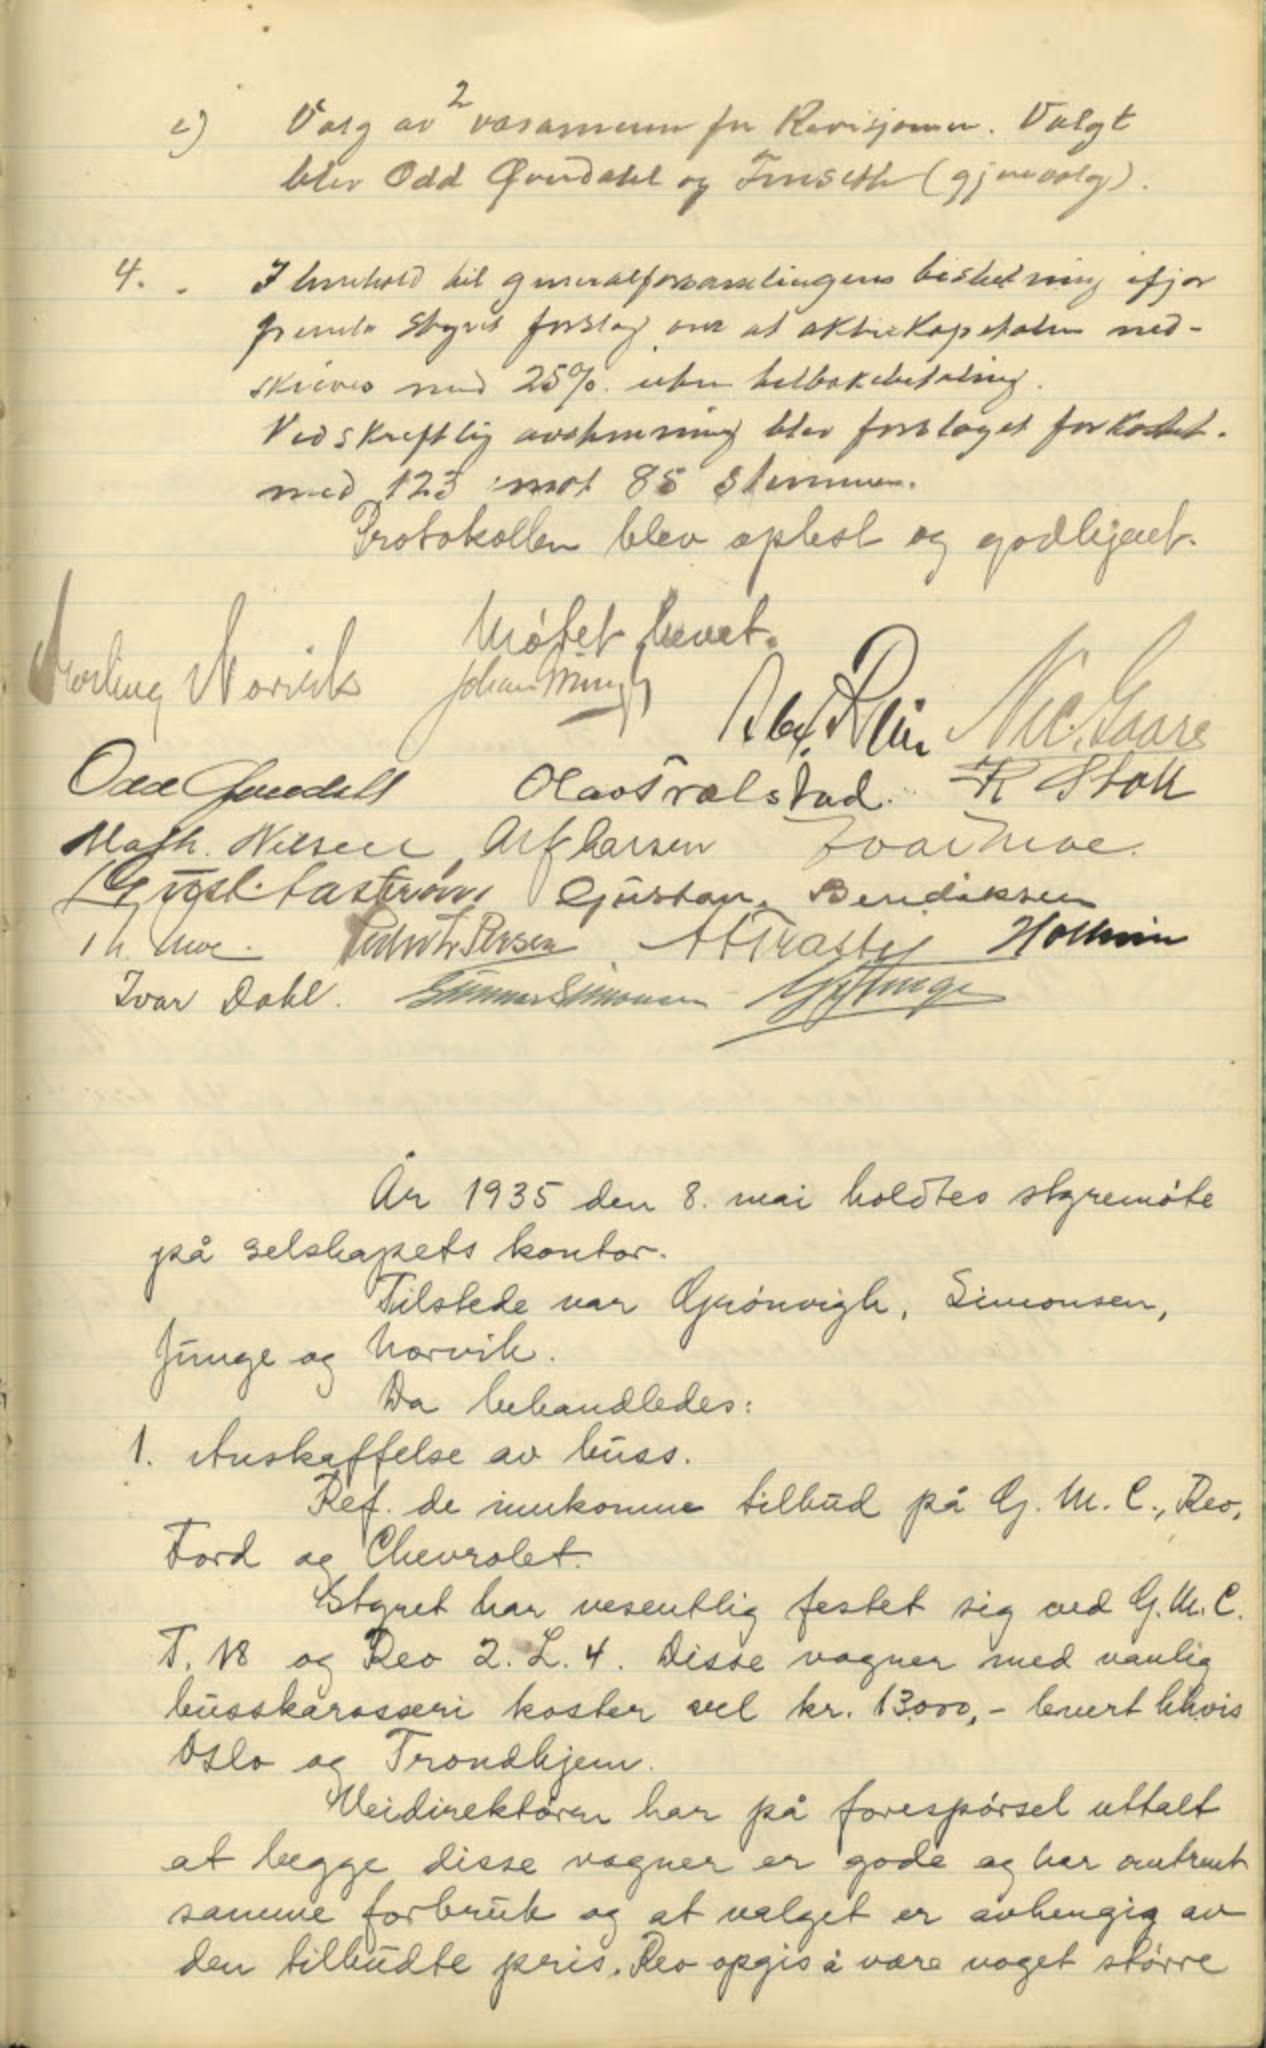 c) Valg av 2 varamenn for Revisjonen. Valgt
blev Odd Øverdahl og Finseth (gjenvalg).
4. I henhold til generalforsamlingens beslutning ifjor
fremla styret forslag om at aktiekapitalen ned-
skrives med 25% uten tilbakebetaling.
Ved skriftlig avstemning blev forslaget forkastet
med 123 mot 85 stemmer.
Protokollen blev oplest og godkjent.
Møtet hevet.
Norvik Johan
Nic. Gaare
Odd Olav Trælstad. R Stoll
Math. Nilsen Alf Larsen Ivar Moe.
Gustav Bendiksen
Th. Moe.
Ivar Dahl. Gunnar Simonsen
År 1935 den 8. mai holdtes styremøte
på selskapets kontor.
Tilstede var Grönvigh, Simonsen,
Junge og Norvik.
Da behandledes:
1. Anskaffelse av buss.
Ref. de innkomne tilbud på G. M. C., Reo,
Ford og Chevrolet.
Styret har vesentlig festet sig ved G. M. C.
T. 18 og Reo 2. L. 4. Disse vogner med vanlig
busskarosseri koster vel kr. 13000,- levert hhvis
Oslo og Trondhjem.
Veidirektøren har på forespørsel uttalt
at begge disse vogner er gode og har omtrent
samme forbruk og at valget er avhengig av
den tilbudte pris. Reo opgis å være noget større